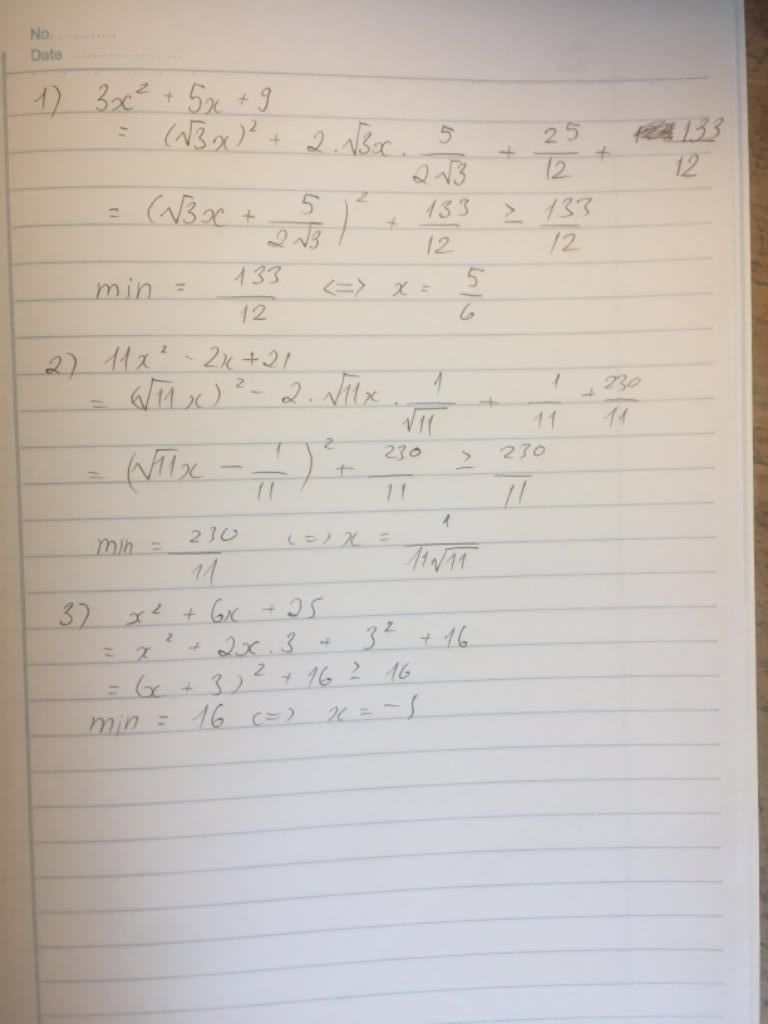 No. ............
Date ........................
1) 3x² + 5x + 9
= (√3x)² + 2.√3x . 5/(2√3) + 25/12 + 133/12
= (√3x + 5/(2√3))² + 133/12 ≥ 133/12
min = 133/12 <=> x = 5/6
2) 11x² - 2x + 21
= (√11x)² - 2.√11x . 1/√11 + 1/11 + 230/11
= (√11x - 1/11)² + 230/11 ≥ 230/11
min = 230/11 <=> x = 1/(11√11)
3) x² + 6x + 25
= x² + 2x.3 + 3² + 16
= (x + 3)² + 16 ≥ 16
min = 16 <=> x = -3